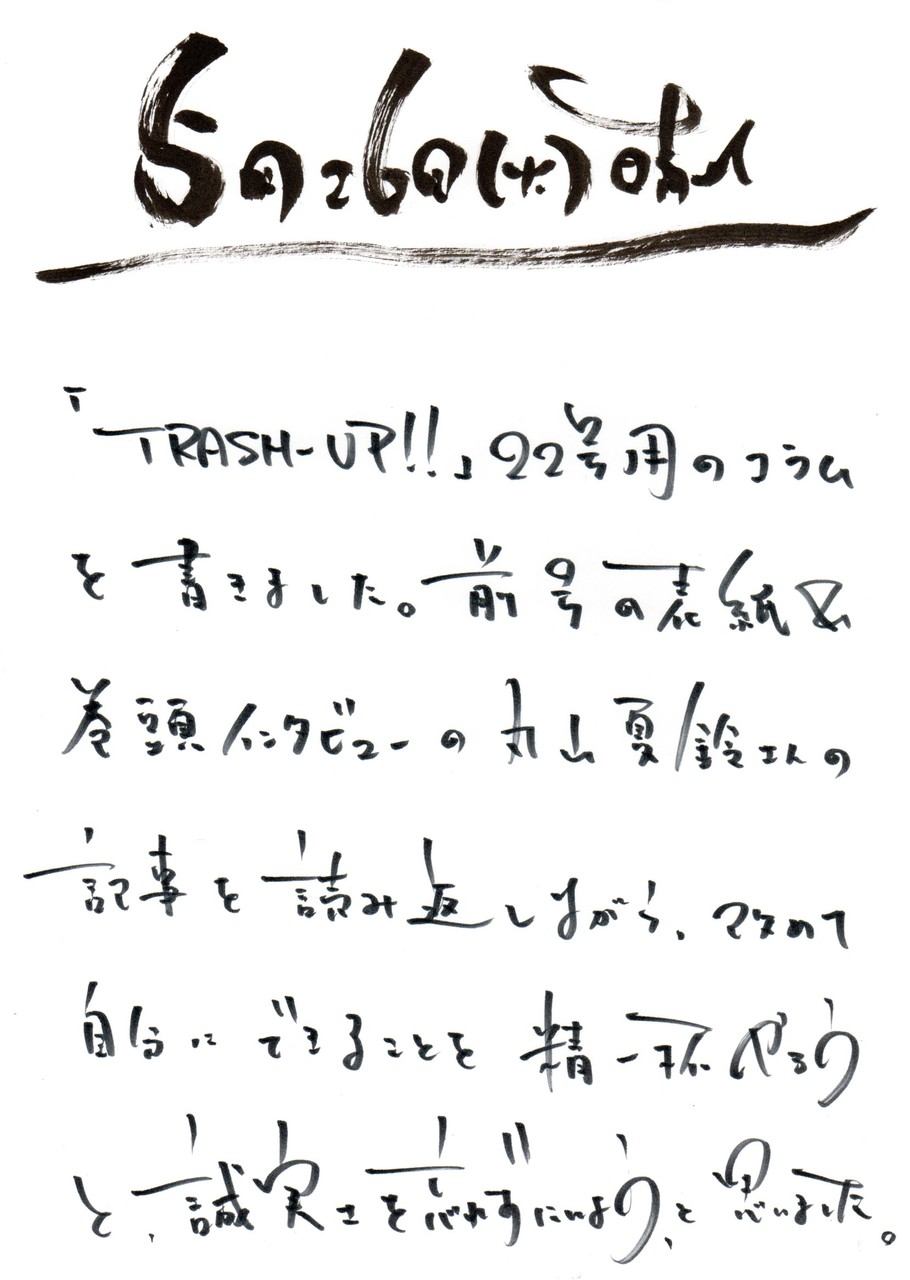 5月26日(火)晴れ
「TRASH-UP!!」22号用のコラム
を書きました。前号の表紙&
巻頭インタビューの丸山夏鈴さんの
記事を読み返しながら、改めて
自分にできることを精一杯やろう
と、誠実さを忘れずにいよう、と思いました。